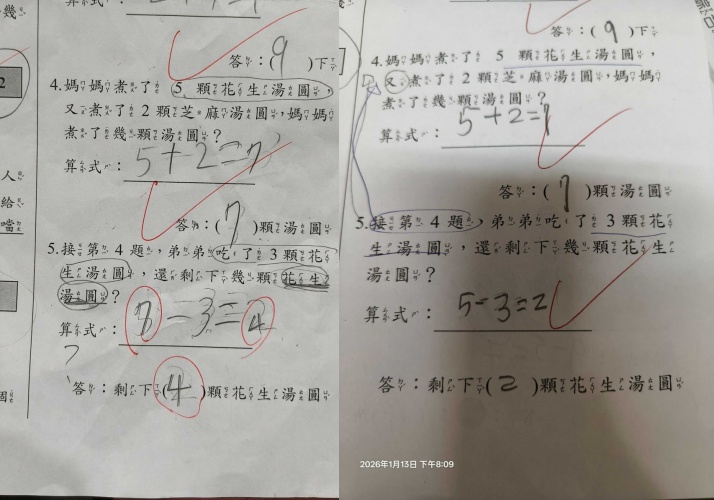 幾
算式：
答：( 9 )下
2
4.媽媽煮了 5 顆花生湯圓，
又煮了 2 顆芝麻湯圓，媽媽
煮了幾顆湯圓？
算式： 5+2=7
答：( 7 )顆湯圓
5.接第 4 題，弟弟吃了 3 顆花
生湯圓，還剩下幾顆花生
湯圓？
算式： 7-3=4
答：剩下( 4 )顆花生湯圓
人
給
噹
個
答：( 9 )下
4.媽媽煮了 5 顆花生湯圓，
又煮了 2 顆芝麻湯圓，媽媽
煮了幾顆湯圓？
算式： 5+2=7
答：( 7 )顆湯圓
5.接第 4 題，弟弟吃了 3 顆花
生湯圓，還剩下幾顆花生
湯圓？
算式： 5-3=2
答：剩下( 2 )顆花生湯圓
2026年1月13日 下午8:09